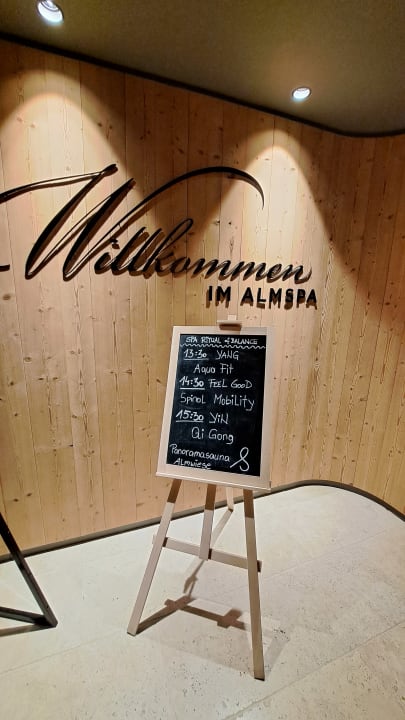 Willkommen
IM ALMSPA
SPA RITUAL of BALANCE
13:30 YANG
Aqua Fit
14:30 FEEL GOOD
Spinal Mobility
15:30 YiN
Qi Gong
Panoramasauna
Almwiese